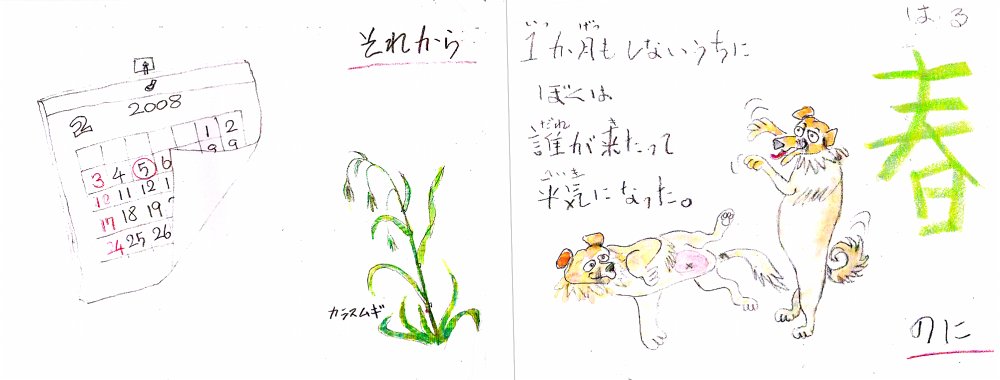 それから
2008
2
1 2
3 4 5 6
10 11 12 1
17 18 19
24 25 26
カラスムギ
はる
春
いっ げつ
1か月もしないうちに
ぼくは
だれ き
誰が来たって
平気になった。
のに